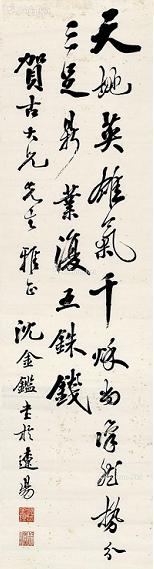 天地英雄氣千秋尚凜然勢分
三足鼎業復五銖錢
賀古大兄先生雅正
沈金鑑書於遼陽